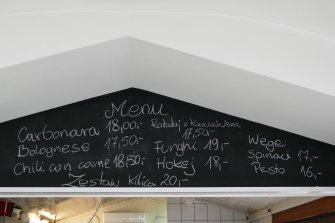 Menu
Carbonara 18,00,-
Bolognese 17,50,-
Chili con carne 18,50,-
Zestaw 20,-
Ratatuj z kurczakiem
17,50-
Funghi 19,-
Hokej 18,-
Wege:
Spinaci 17,-
Pesto 16,-